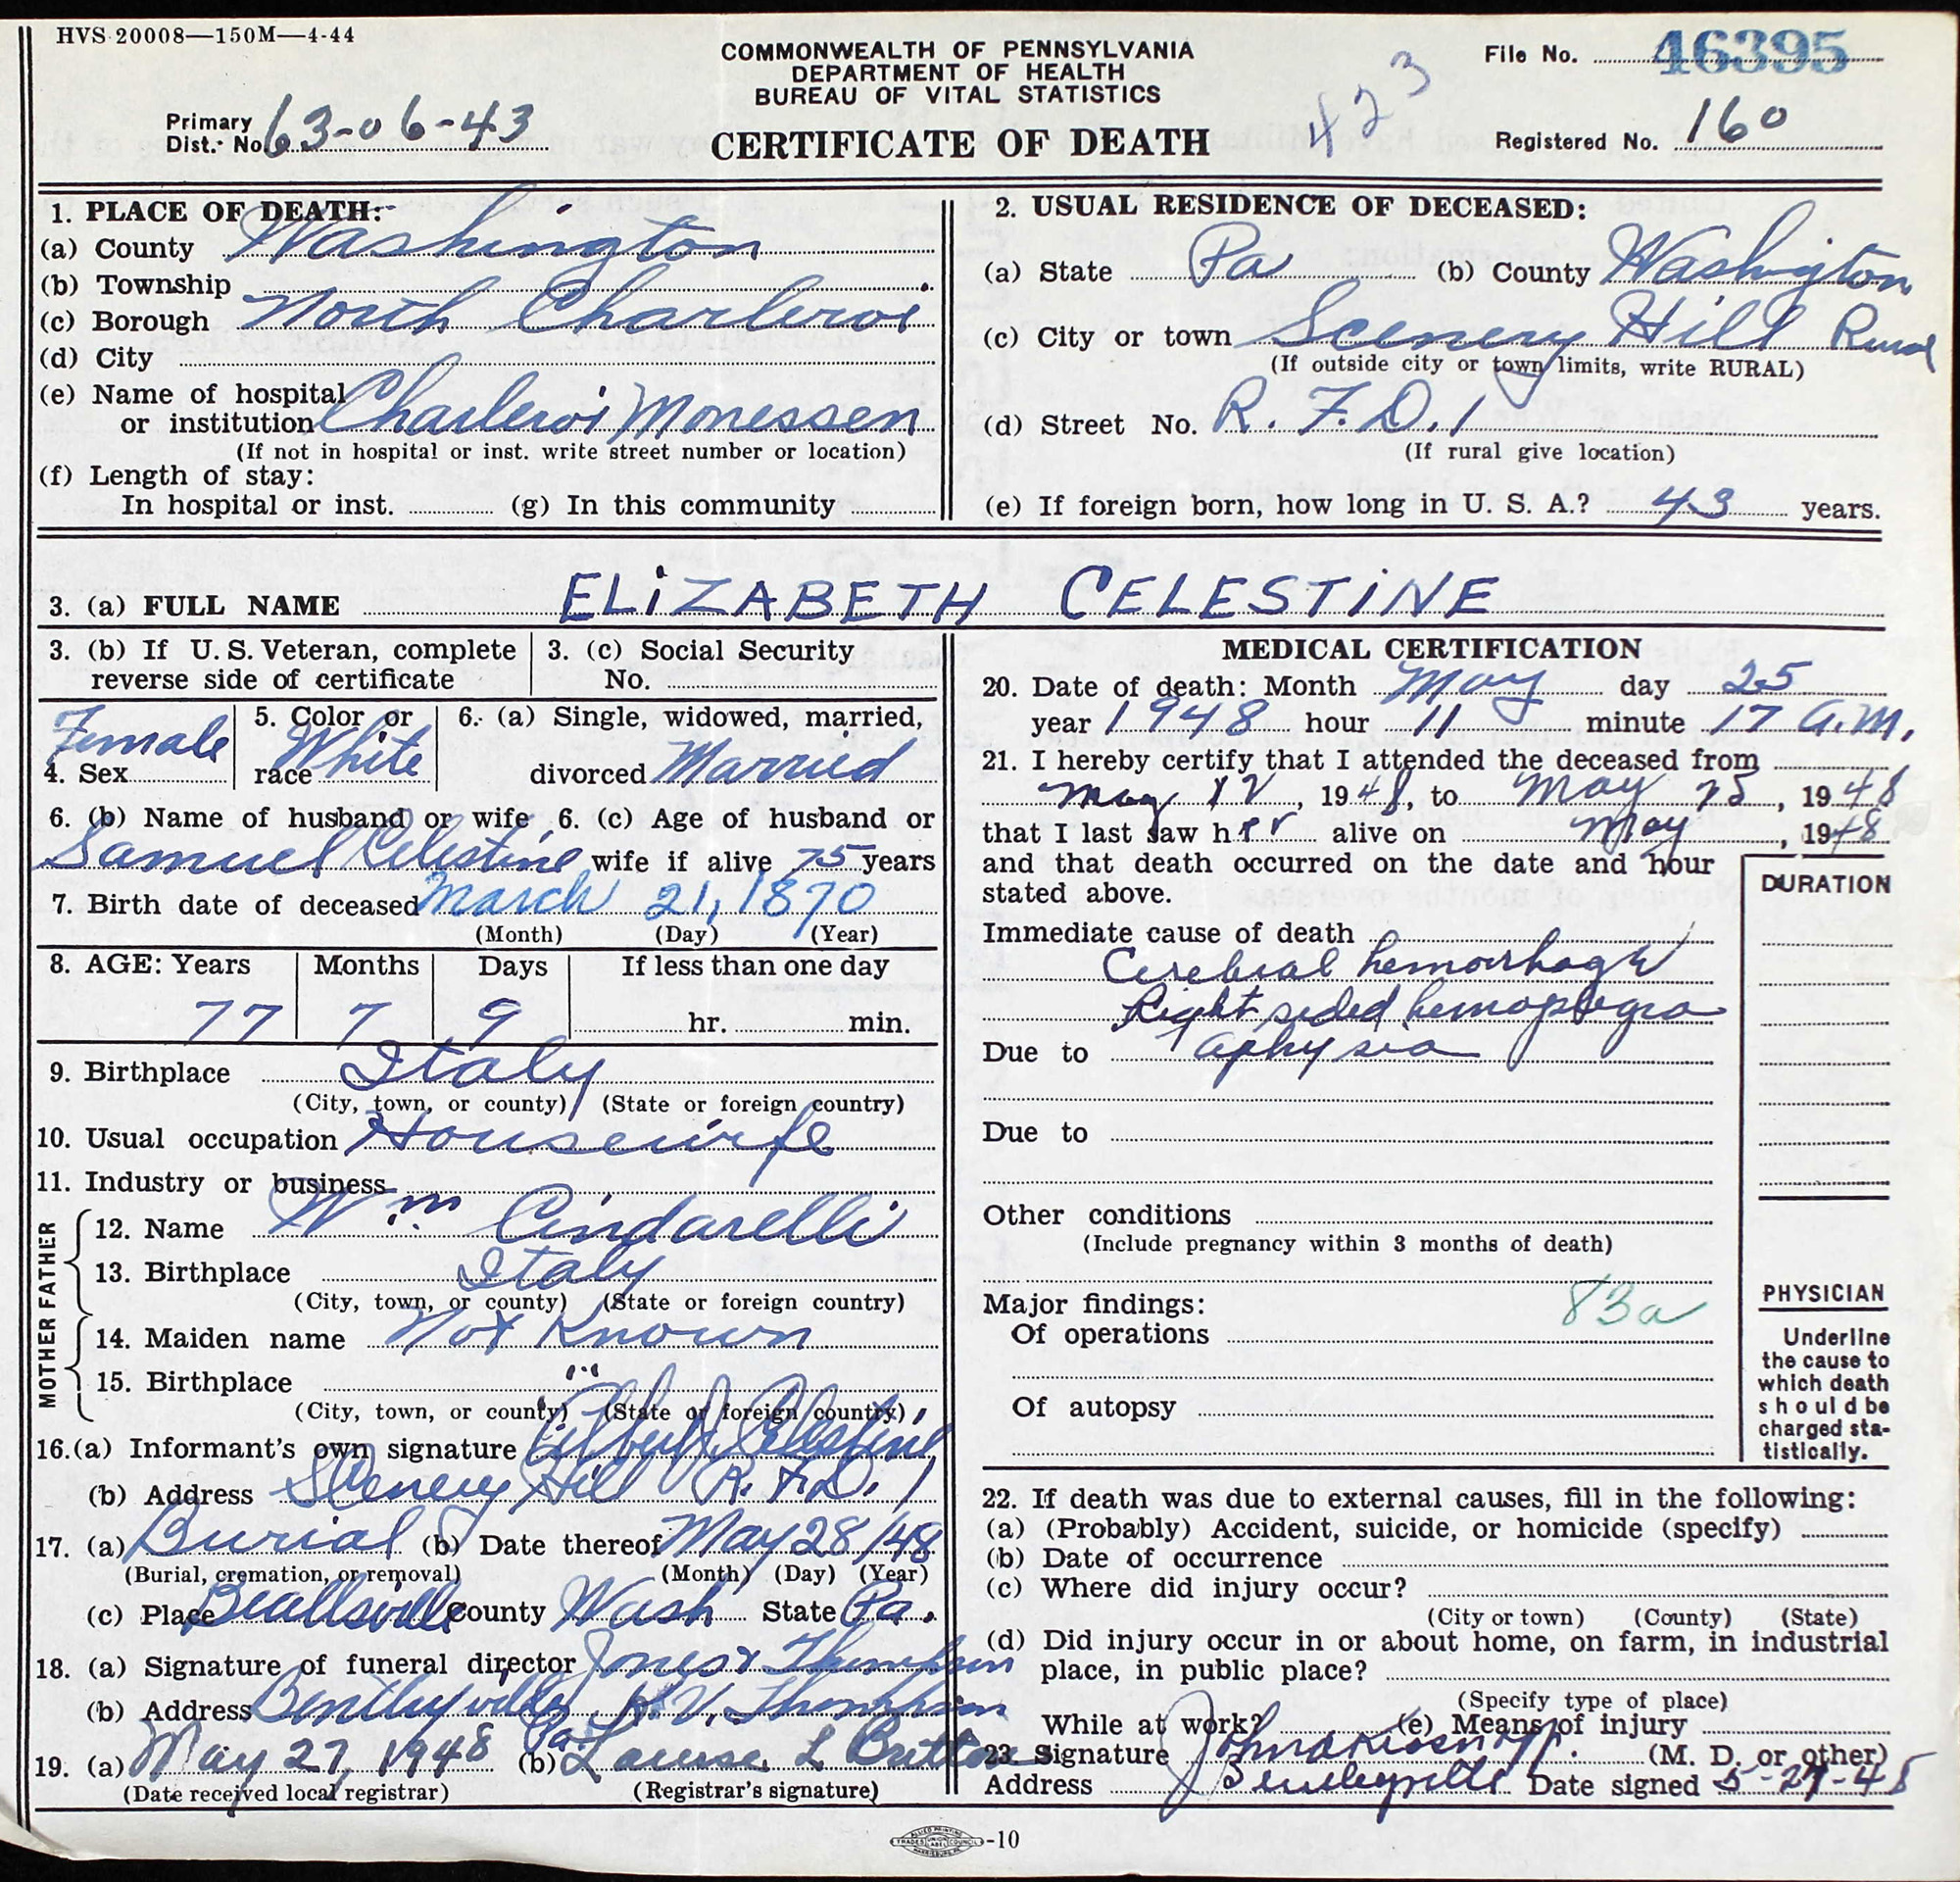 HVS 20008—150M—4-44
COMMONWEALTH OF PENNSYLVANIA
DEPARTMENT OF HEALTH
BUREAU OF VITAL STATISTICS
CERTIFICATE OF DEATH
423
File No. 46395
Primary Dist. No. 63-06-43
Registered No. 160
1. PLACE OF DEATH:
(a) County Washington
(b) Township
(c) Borough North Charleroi
(d) City
(e) Name of hospital
or institution Charleroi Monessen
(If not in hospital or inst. write street number or location)
(f) Length of stay:
In hospital or inst. (g) In this community
2. USUAL RESIDENCE OF DECEASED:
(a) State Pa (b) County Washington
(c) City or town Scenery Hill Rural
(If outside city or town limits, write RURAL)
(d) Street No. R. F. D. 1
(If rural give location)
(e) If foreign born, how long in U. S. A.? 43 years.
3. (a) FULL NAME ELIZABETH CELESTINE
3. (b) If U. S. Veteran, complete
reverse side of certificate
3. (c) Social Security
No.
4. Sex Female
5. Color or
race White
6. (a) Single, widowed, married,
divorced Married
6. (b) Name of husband or wife
Samuel Celestine
6. (c) Age of husband or
wife if alive 75 years
7. Birth date of deceased March 21, 1870
(Month) (Day) (Year)
8. AGE: Years Months Days If less than one day
77 7 9 hr. min.
9. Birthplace Italy
(City, town, or county) (State or foreign country)
10. Usual occupation Housewife
11. Industry or business
FATHER
12. Name Wm Cindarelli
13. Birthplace Italy
(City, town, or county) (State or foreign country)
MOTHER
14. Maiden name Not Known
15. Birthplace "
(City, town, or county) (State or foreign country)
16.(a) Informant's own signature Celestine
(b) Address Scenery Hill R. F. D. 1
17. (a) Burial (b) Date thereof May 28/48
(Burial, cremation, or removal) (Month) (Day) (Year)
(c) Place Beallsville County Wash State Pa.
18. (a) Signature of funeral director Jones & Thompson
(b) Address Bentleyville Pa. H. V. Thompson
19. (a) May 27, 1948 (b) Louise L Britton
(Date received local registrar) (Registrar's signature)
MEDICAL CERTIFICATION
20. Date of death: Month May day 25
year 1948 hour 11 minute 17 A.M.
21. I hereby certify that I attended the deceased from
May 12, 1948, to May 25, 1948
that I last saw her alive on May, 1948
and that death occurred on the date and hour
stated above.
DURATION
Immediate cause of death
Cerebral hemorrhage
Right sided hemoplegia
Due to aphysia
Due to
Other conditions
(Include pregnancy within 3 months of death)
Major findings:
83a
Of operations
Of autopsy
PHYSICIAN
Underline
the cause to
which death
should be
charged sta-
tistically.
22. If death was due to external causes, fill in the following:
(a) (Probably) Accident, suicide, or homicide (specify)
(b) Date of occurrence
(c) Where did injury occur?
(City or town) (County) (State)
(d) Did injury occur in or about home, on farm, in industrial
place, in public place?
(Specify type of place)
While at work? (e) Means of injury
23 Signature (M. D. or other)
Address Bentleyville Date signed 5-27-48
ALLIED PRINTING
TRADES UNION LABEL COUNCIL
HARRISBURG, PA.
-10